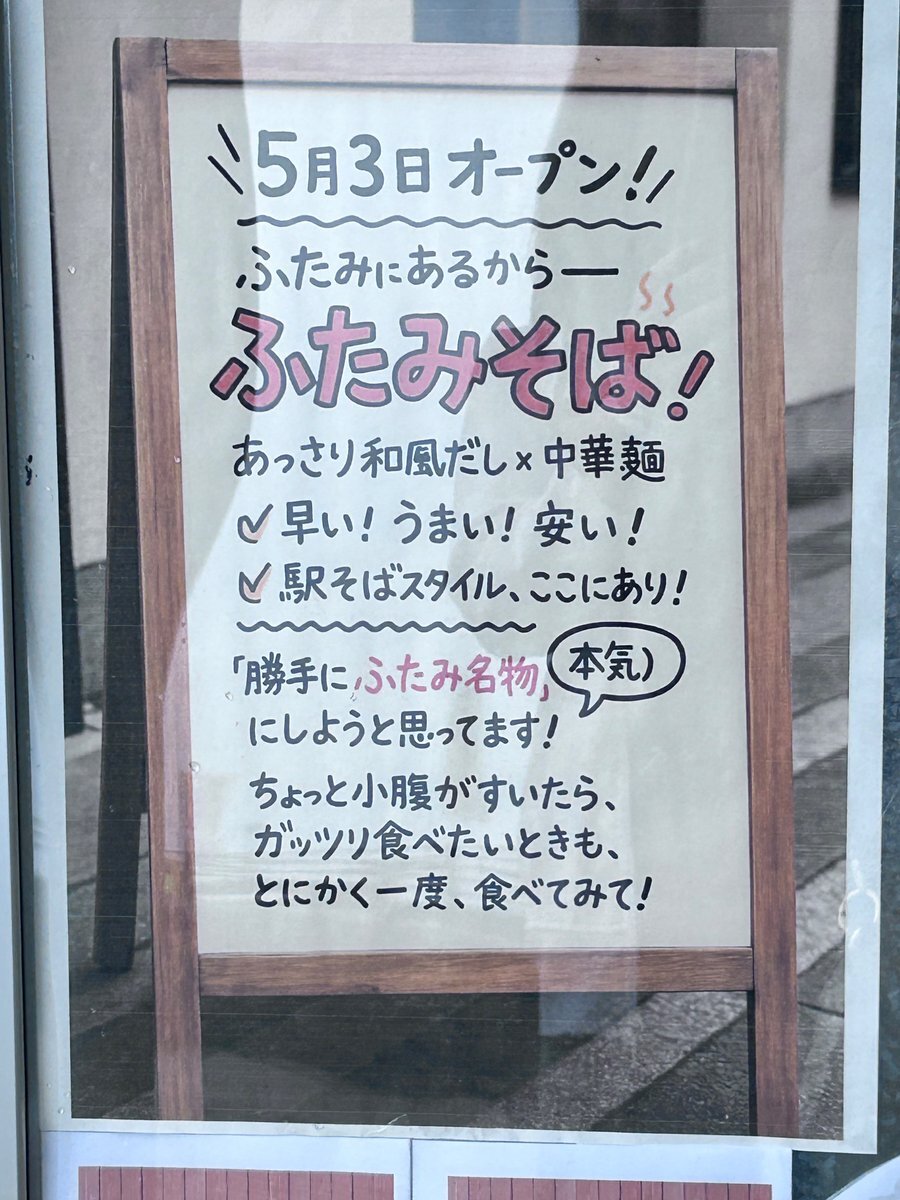 5月3日オープン!
ふたみにあるから—
ふたみそば!
あっさり和風だし×中華麺
✓早い!うまい!安い!
✓駅そばスタイル、ここにあり!
「勝手にふたみ名物」
本気)
にしようと思ってます!
ちょっと小腹がすいたら、
ガッツリ食べたいときも、
とにかく一度、食べてみて!